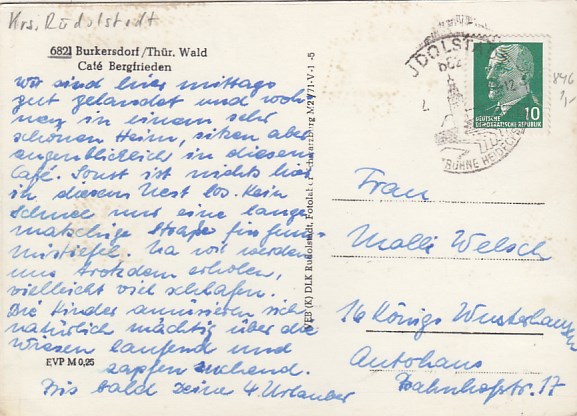 Krs. Rudolstadt
6821 Burkersdorf/Thür. Wald
Café Bergfrieden
Wir sind hier mittags
gut gelandet und woh-
nen in einem sehr
schönen Heim, sitzen aber
augenblicklich in diesem
Café. Sonst ist nichts
in diesem Nest los. Kein
Schnee nur eine lange
matschige Straße für Gum-
mistiefel. Na wir werden
uns trotzdem erholen,
vielleicht viel schlafen.
Die Kinder amüsieren sich
natürlich mächtig über die
Wiesen laufend und
zapfen suchend.
EVP M 0,25
Bis bald Deine 4 Urlauber
VEB (K) DLK Rudolstadt, Fotolab
10
DEUTSCHE
DEMOKRATISCHE REPUBLIK
846
1,-
Frau
Malli Welsch
16 Königs Wusterhausen
Autohaus
Bahnhofstr. 17